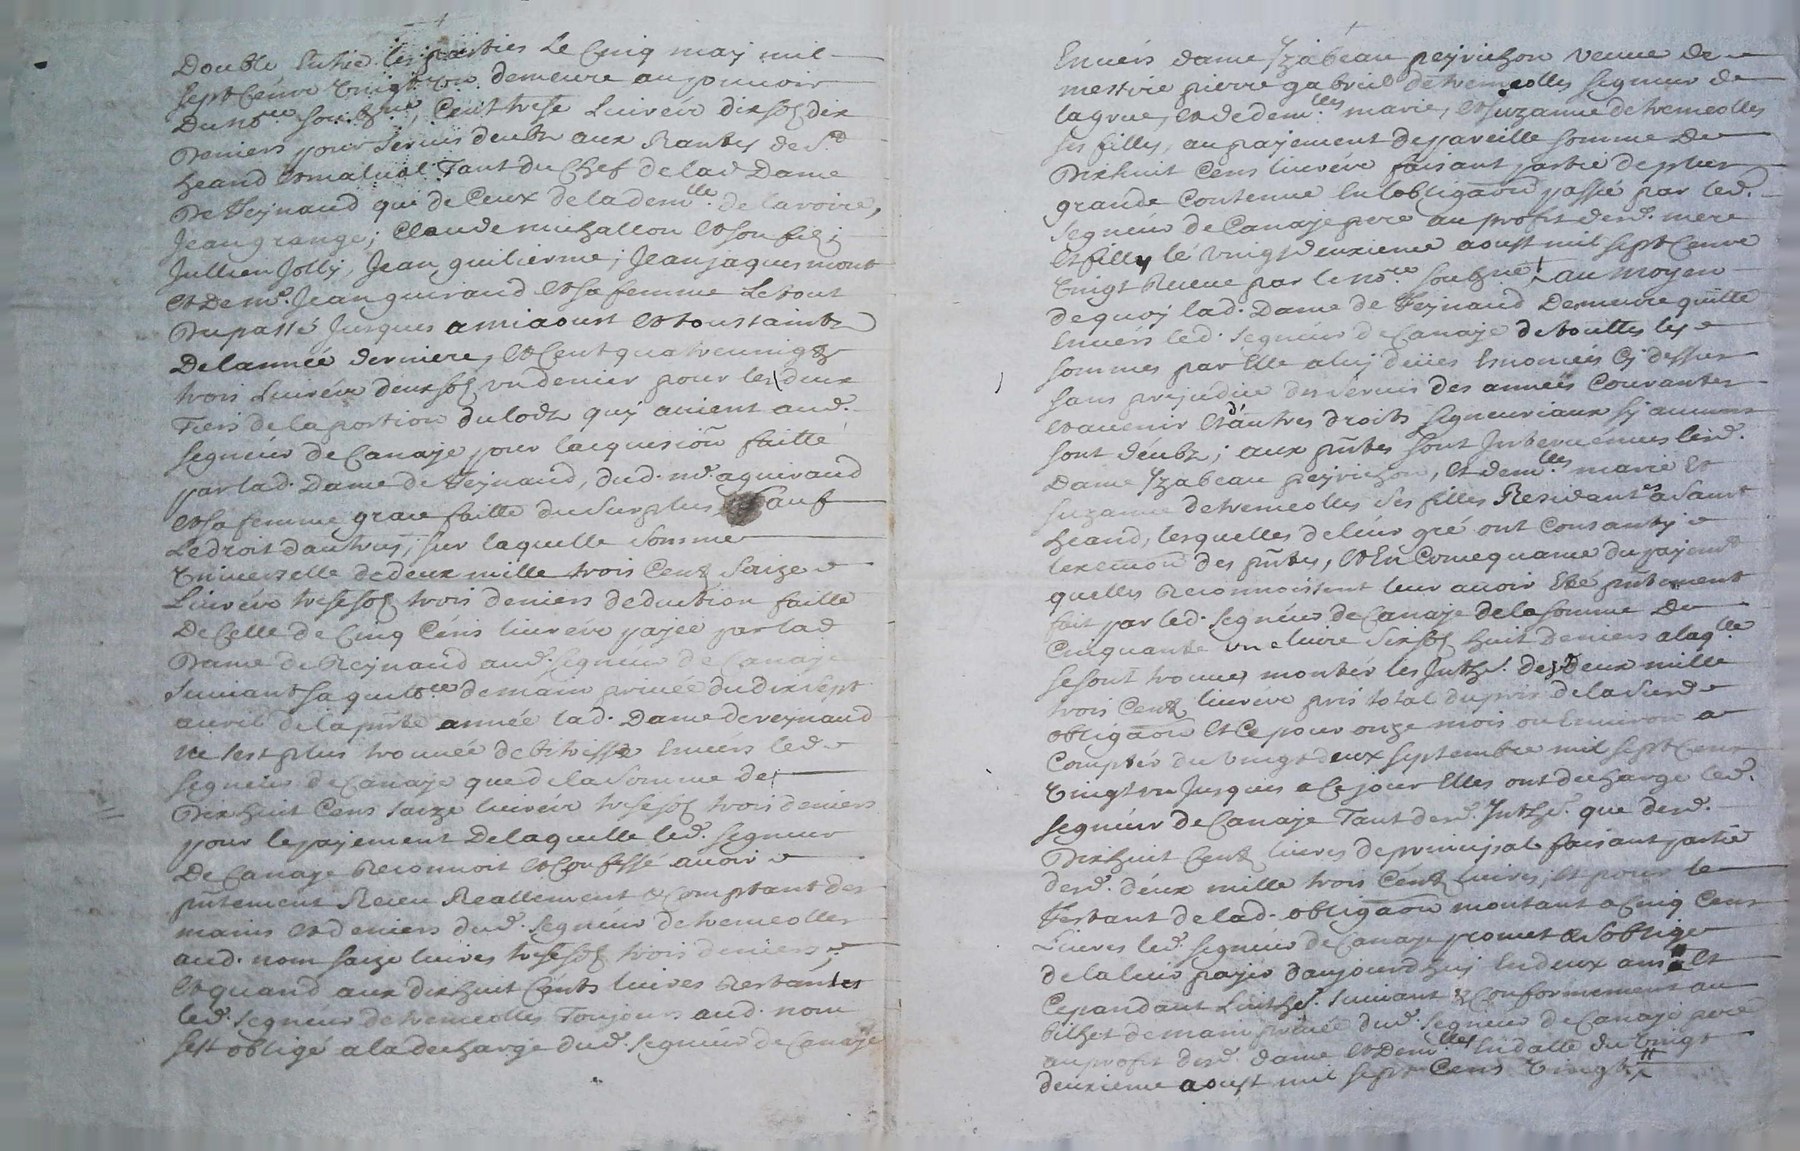 Double Entre les parties Le Cinq may mil
sept Cens vingt un demeuré au pouvoir
Du no.re soubz.né, Cent trese Livres dix sols dix
Deniers pour servis deubz aux Rantes de S.d
heand et malval Tant du Chef de lad Dame
De Veynaud que de Ceux de la dem.lle de lavoire,
Jean grange, Claude michallon et son fils
Jullien Jolly, Jean guilierme, Jean jaques mont
et De m.e Jean guiraud et sa femme Le tout
Du passé Jusques a miaoust et toussaintz
De lannée derniere, et Cent quatre vingtz
trois Livres deux sols un denier pour les deux
Tiers de la portion du lodz quj avient aud.
segneur de Canaye pour lacquesiõn faitte
par lad. Dame de Veynaud, dud. m.e aguiraud
et sa femme grace faitte du surplus sauf
Le droit dautruj, sur laquelle somme
universelle de deux mille trois Centz Saize
Livres trese sols trois deniers deduction faitte
De Celle de Cinq Céns livres payée par lad
Dame de Veynaud aud. segneur de Canaye
suivant sa quitt.ce de main privée du dixsept
avril de la pñte année lad. Dame de veynaud
ne sest plus trouvée debitrisse Envers led.
segneur de Canaye que de la somme de
Dixhuit Cens saize livres trese sols trois deniers
pour le payement De laquelle led. segneur
De Canaye Reconnoit et Confesse avoir
pñtement Receu Reallement & Comptant des
mains et deniers dud. segneur de tremeolles
aud. nom saize livres trese sols trois deniers,
et quand aux dixhuit Cents livres Restantes
led. segneur de tremeolles Toujours aud. nom
sest obligé a la decharge dud. segneur de Canaye
Envers dame Jzabeau peyrichon veuve de
messire pierre gabriel de tremeolles segneur de
lagrue, et de dem.lles marie, et suzanne de tremeolles
ses filles, au payement de pareille somme de
Dixhuit Cens livres faisant partie de plus
grande Contenue En lobligãon passée par led.
segneur de Canaye pere au profit desd. mere
et filles le vingt deuxieme aoust mil sept Cens
vingt Receue par le no.re soubz.né, au moyen
de quoy lad. Dame de Veynaud Demeure quitte
Envers led. segneur de Canaye de touttes les
sommes par Elle a luy deües Enoncées Cy dessus
sans prejudice des servis des années Courantes
et avenir et d'autres droits segneuriaux sy aucuns
sont deubz; aux pñtes sont Intervenues lesd.
Dame Jzabeau peyrichon, et dem.lles marie et
suzanne de tremeolles ses filles Residantes a Saint
heand, lesquelles de leur gré ont Consanty
des pñtes, et En Consequance du payem.t
quelles Reconnoissent leur avoir Eté pñtement
fait par led. segneur de Canaye de la somme de
Cinquante une livre six sols huit deniers a laq.lle
se sont trouvés monter les Inthe.ts des deux mille
trois Centz livres pris total du pris de la susd
obligãon et Ce pour onze mois ou Environ a
Compter du vingt deux septembre mil sept Cens
vingt un Jusques a Ce jour Elles ont decharge led.
segneur de Canaye Tant desd. Inthe.ts que desd.
Dixhuit Centz livres de principal faisant partie
desd. deux mille trois Centz livres, et pour le
Restant de lad. obligãon montant a Cinq Cens
Livres led. segneur de Canaye promet & soblige
de la leur payer daujourdhuj En deux ans et
Cepandant suivant & Conformement au
bilhet de main privée dud. segneur de Canaye pere
au profit desd. dame et Dem.lles En datte du vingt
deuxieme aoust mil sept Cens vingt